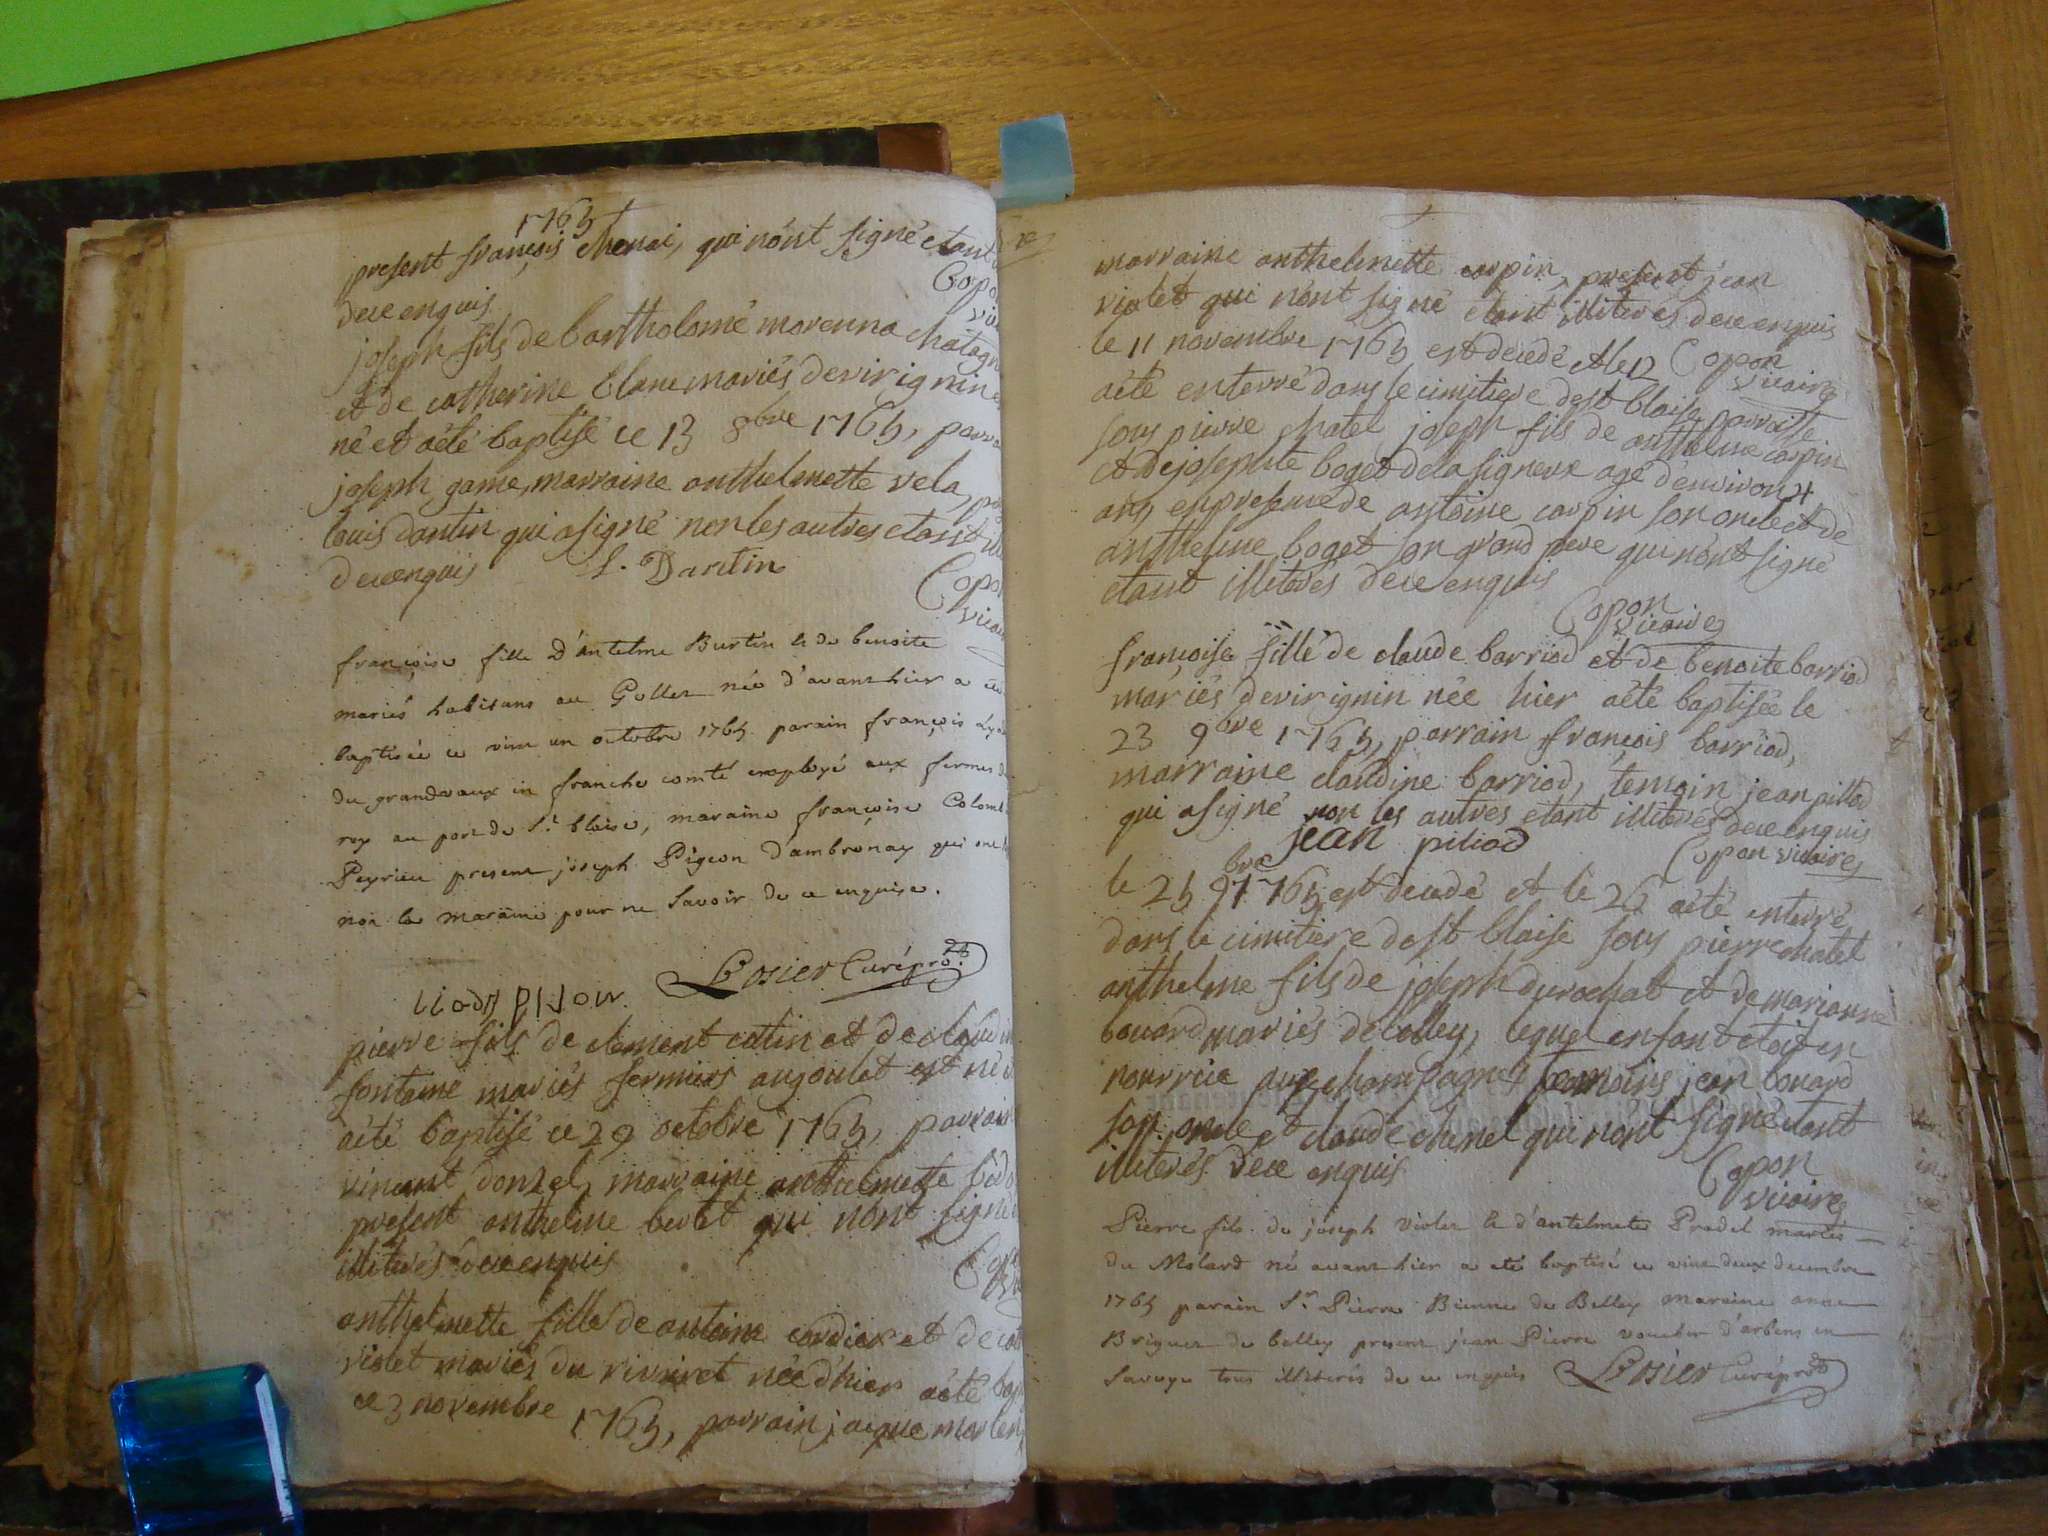 1765
present françois chenai, qui nönt signé etant
dece enquis Copon
vic
joseph fils de bartholomé morenna chatagn
et de catherine blanc mariés de virignin
né et aété baptisé le 13 8bre 1765, parra
joseph game, marraine anthelmette vela, pr
louis dantin qui asigné non les autres etant ill
dece enquis L. Dantin
Copon
vicai
françoise fille D'antelme Burtin & de benoite
mariés habitans au Gollet née d'avant hier a été
baptisée ce vint un octobre 1765 parain françois
du grandvaux en franche comté employé aux fermes du
roy au port de St blaise, maraine françoise Colomb
Peyrieu present joseph Pigeon d'ambronay qui ont
non la maraine pour ne savoir de ce enquise.
Losier Curé prod.
pierre fils de clement catin et de claudin
fontaine mariés fermiers augoulet est né
aété baptisé ce 29 octobre 1765, parrain
vincent donzel, marraine anthelmette bido
present anthelme berlet qui nönt signé
illiterés dece enquis
Copon
anthelmette fille de antoine cordier et de
violet mariés du riviret née d'hier aété bap
ce 3 novembre 1765, parrain jacque marten
marraine anthelmette carpin, present jean
violet qui nönt signé étant illiterés dece enquis
le 11 novembre 1765 est decedé et le 12 Copon
vicaire
aété enterré dans le cimitiere de st blaise parroisse
sous pierre chatel joseph fils de anthelme carpin
et de josephte boget de la signeux agé d'environ 4
ans, en presence de antoine carpin son oncle et de
anthelme boget son grand pere qui nönt signé
etant illiterés dece enquis
Copon
vicaire
françoise fille de claude barriod et de benoite barriod
mariés de virignin née hier aété baptisée le
23 9bre 1765, parrain françois barriod,
marraine claudine barriod, temoin jean pillod
qui asigné non les autres etant illiterés dece enquis
jean piliod
Copon vicaire
le 25 9bre 1765 est decedé et le 26 aété enterré
dans le cimitiere de st blaise sous pierre chatel
anthelme fils de joseph durochat et de marianne
bouard mariés de belley, lequel enfant étoit en
nourrice aux champagnes temoins jean bouard
son oncle et claude chenel qui nönt signé etant
illiterés dece enquis
Copon
vicaire
Pierre fils de joseph violet & d'antelmete Pradel mariés
du Molard né avant hier a eté baptisé ce vint deux decembre
1765 parain Sr. Pierre Bienne de Belley maraine anne
Briguet de belley present jean Pierre voucher d'arbens en
Savoye tous illiterés de ce enquis Losier Curé prod